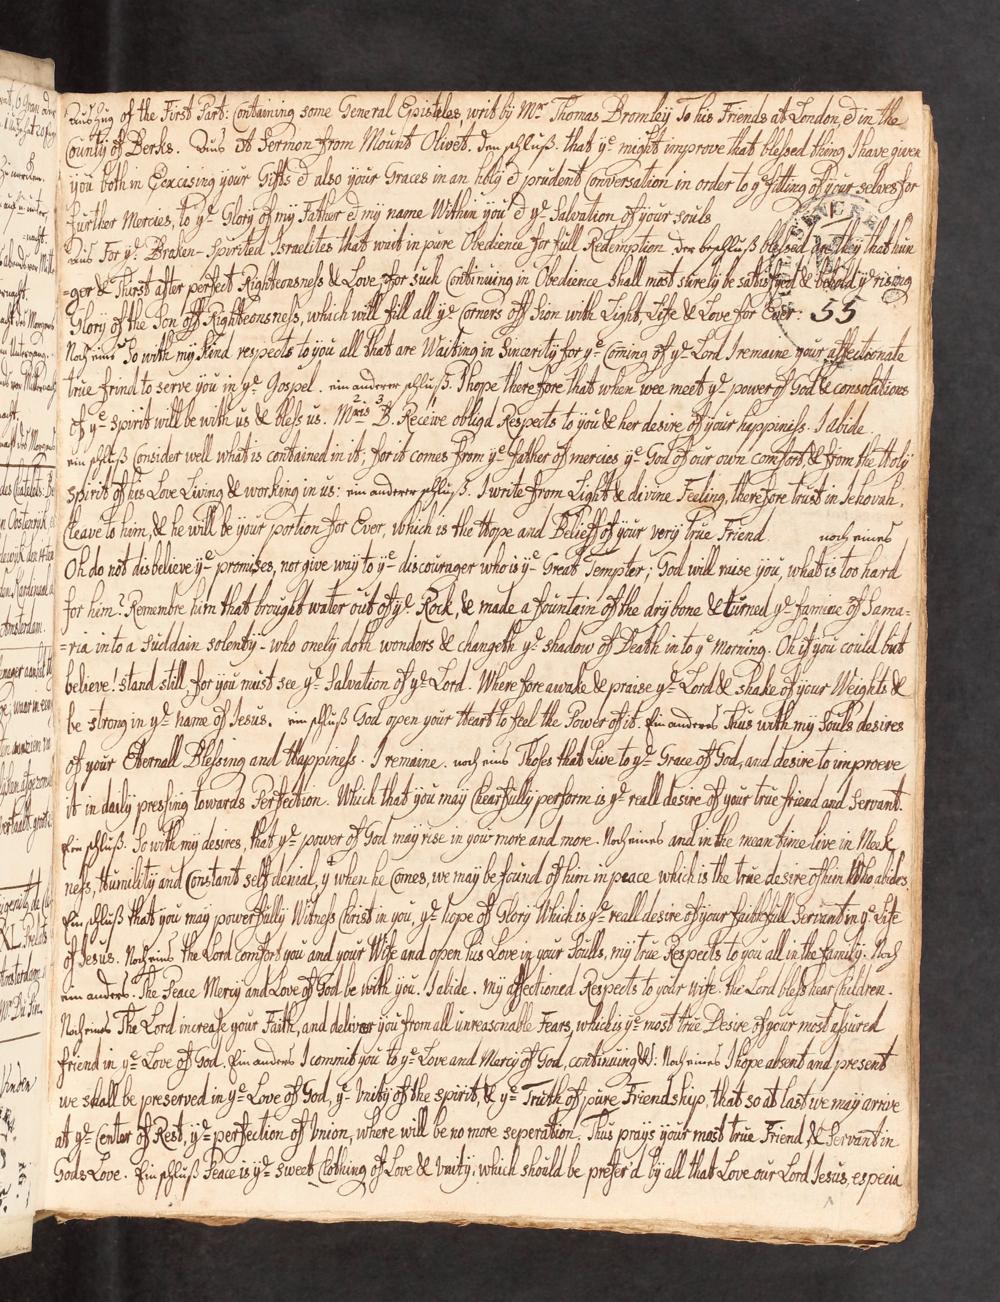 Auszug of the First Part: Containing some General Episteles, writ by Mr Thomas Bromley To his Friends at London, & in the
County of Berks. Aus It Sermon from Mount Olivet. Den schluß. that ye might improve that blessed thing I have given
you both in Excusing your Gifts & also your Graces in an holy & prudent Conversation in order to ye fitting of your selves for
further Mercies, to ye Glory of my Father & my name Within you & ye Salvation of your souls
Aus For ye Broken-Spirited Israelites that wait in pure Obedience for full Redemption Der beschluß blessed are they that hun
=ger & Thirst after perfect Righteousness & Love for such Continuing in Obedience Shall most surely be satisfyed & behold ye rising
Glory of the Son off Righteousness, which will fill all ye Corners off Sion with Light, Life & Love for Ever: 55
Noch eins So with my kind respects to you all that are Waiting in Sincerity for ye Coming of ye Lord I remaine your affectionate
true frind to serve you in ye Gospel. ein anderer schluß. I hope therefore that when wee meet ye power of God & consolations
of ye spirit will be with us & bless us. Mris B. Receive obligd Respects to you & her desire of your happiniss. I abide.
ein schluß Consider well what is contained in it; for it comes from ye father of mercies ye God of our own comfort & from the Holy
spirit of his Love Living & working in us: ein anderer schluß. I write from Light & divine Feeling, therefore trust in Jehovah,
Cleave to him, & he will be your portion for Ever, which is the Hope and Belieff of your very true Friend noch eines
Oh do not disbelieve ye promises, nor give way to ye discourager who is ye Great Tempter; God will raise you, what is too hard
for him? Remembre him that brought water out of ye Rock, & made a fountain of the dry bone & turned ye famine of Sama=
=ria into a suddain solenty - who onely doth wonders & changeth ye shadow of Death in to ye Morning. Oh if you could but
believe! stand still for you must see ye Salvation of ye Lord. Where fore awake & praise ye Lord & shake of your Weights &
be strong in ye name of Jesus. ein schluß God open your Heart to feel the Power of it. Ein anderes Thus with my Souls desires
of your Eternall Blessing and Happiness. I remaine. noch eins Thoses that Live to ye Grace of God, and desire to improeve
it in daily pressing towards Perfection. Which that you may Chearfully perform is ye reall desire of your true friend and Servant.
Ein schluß. So with my desires, that ye power of God may rise in you more and more. Noch eines and in the mean time live in Meek
ness, Humility and Constant self denial, y when he Comes, we may be found of him in peace which is the true desire of him Who abides.
Ein schluß that you may powerfully Witness Christ in you, ye hope of Glory Which is ye reall desire of your faithfull Servant in ye Life
of Jesus. Noch eins the Lord comfort you and your Wife and open his Love in your Soulls, my true Respects to you all in the family. Noch
ein anders. The Peace Mercy and Love of God be with you. I abide. My affectioned Respects to your wife. the Lord bless hear Children.
Noch eins The Lord increase your Faith, and deliver you from all unreasonable Fears, which is ye most true Desire of your most assured
friend in ye Love of God. Ein anders I commit you to ye Love and Mercy of God, continuing &: Noch eines I hope absent and present
we shall be preserved in ye Love of God, ye Unity of the spirit, & ye Truth of pure Friendship, that so at last we may arrive
at ye Center of Rest, ye perfection of Union, where will be no more seperation. Thus prays your most true Friend & Servant in
Gods Love. Ein schluß Peace is ye sweet Clothing of Love & Unity, which should be prefer'd by all that Love our Lord Jesus, especia